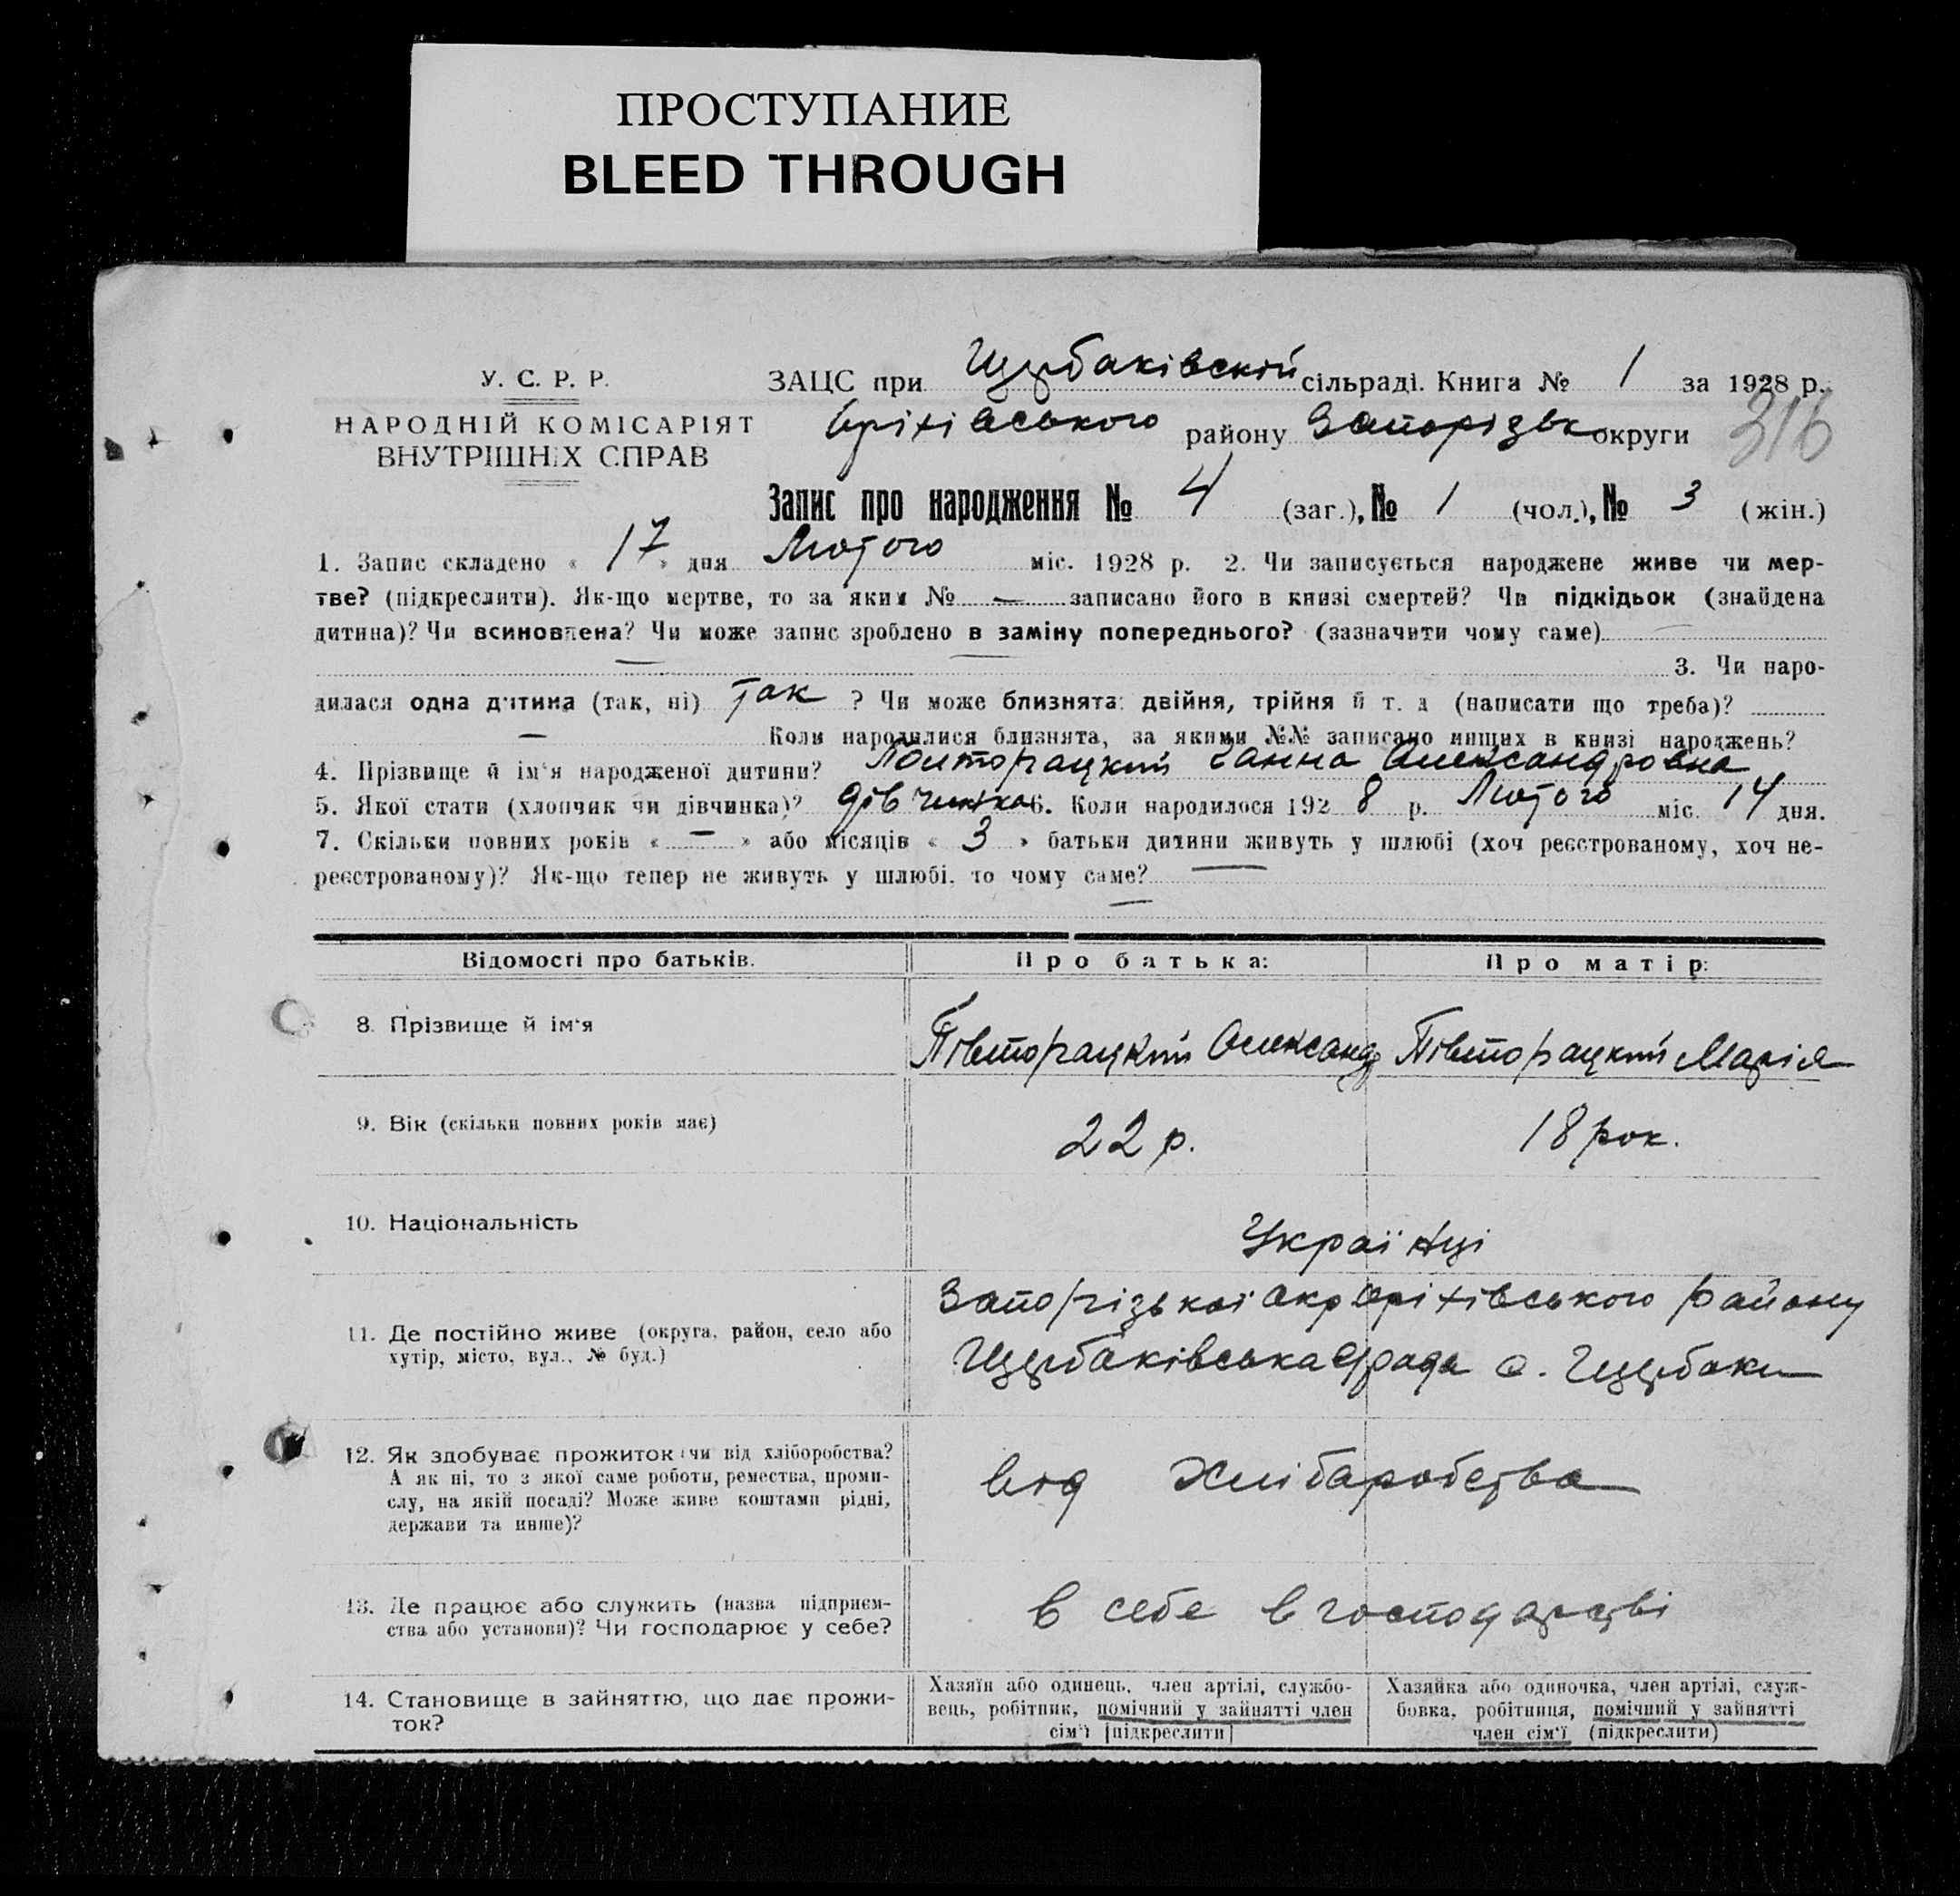 ПРОСТУПАНИЕ
BLEED THROUGH
У. С. Р. Р.
НАРОДНІЙ КОМІСАРІЯТ
ВНУТРІШНІХ СПРАВ
ЗАЦС при Щербаківскій сільраді. Книга № 1 за 1928 р.
Оріхівського району Запорізьк округи
316
Запис про народження № 4 (заг.), № 1 (чол.), № 3 (жін.)
1. Запис складено « 17 » дня Лютого міс. 1928 р. 2. Чи записується народжене живе чи мер-
тве? (підкреслити). Як-що мертве, то за яким № — записано його в книзі смертей? Чи підкідьок (знайдена
дитина)? Чи всиновлена? Чи може запис зроблено в заміну попереднього? (зазначити чому саме) —
— 3. Чи наро-
дилася одна дитина (так, ні) так ? Чи може близнята: двійня, трійня й т. д (написати що треба)?
— Коли народилися близнята, за якими №№ записано инших в книзі народжень?
4. Прізвище й ім'я народженої дитини? Полторацкий Ганна Олександровна
5. Якої стати (хлопчик чи дівчинка)? дівчинка 6. Коли народилося 1928 р. Лютого міс. 14 дня.
7. Скільки повних років « — » або місяців « 3 » батьки дитини живуть у шлюбі (хоч реєстрованому, хоч не-
реєстрованому)? Як-що тепер не живуть у шлюбі, то чому саме? —
—
Відомості про батьків. Про батька: Про матір:
8. Прізвище й ім'я Півторацкий Олександр Півторацкий Марія
9. Вік (скільки повних років має) 22 р. 18 рок.
10. Національність Українці
11. Де постійно живе (округа, район, село або
хутір, місто, вул., № буд.)
Запорізької окр Оріхівського району
Щербаківська с. Щербаки
12. Як здобуває прожиток (чи від хліборобства?
А як ні, то з якої саме роботи, ремества, проми-
слу, на якій посаді? Може живе коштами рідні,
держави та инше)?
від Хлібаробства
13. Де працює або служить (назва підприєм-
ства або установи)? Чи господарює у себе?
в себе в господарстві
14. Становище в зайняттю, що дає прожи-
ток?
Хазяїн або одинець, член артілі, службо-
вець, робітник, помічний у зайнятті член
сім'ї [підкреслити]
Хазяйка або одиночка, член артілі, служ-
бовка, робітниця, помічний у зайнятті
член сім'ї (підкреслити)